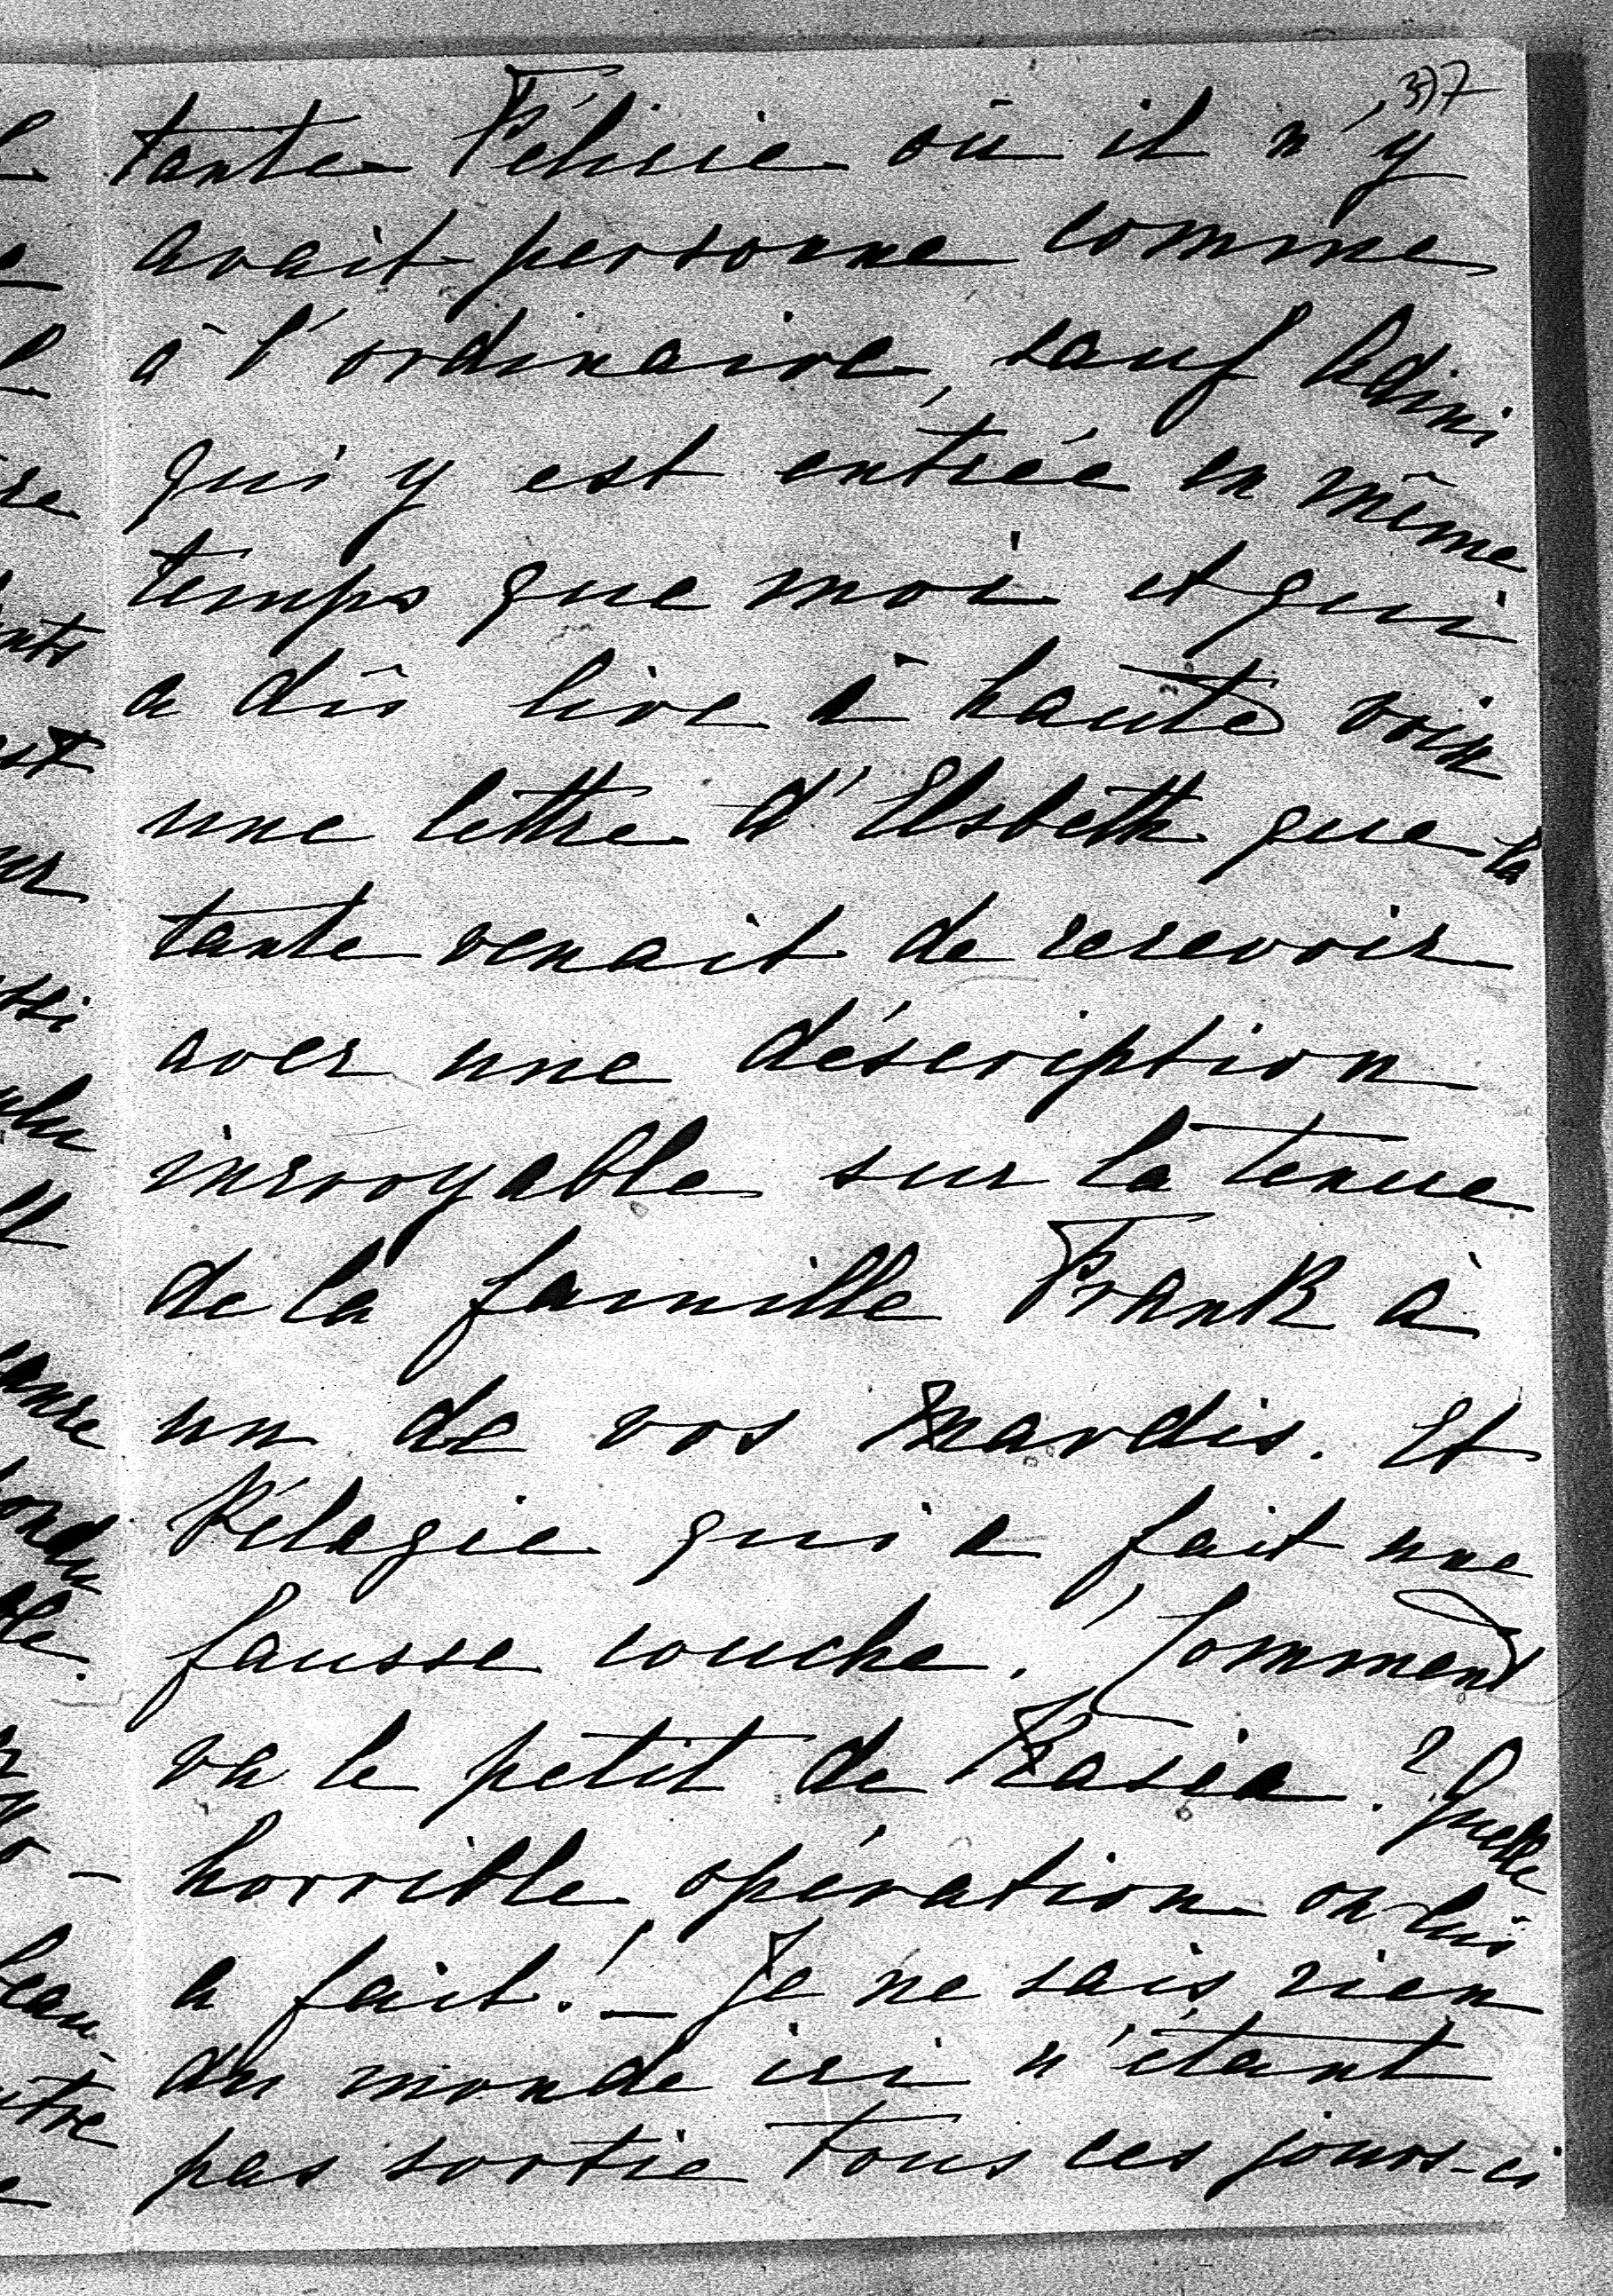 377
tante Félicie où il n'y
avait personne comme
à l'ordinaire, sauf Adini
qui y est entrée en même
temps que moi et qui
a dû lire à haute voix
une lettre d'Elsbeth que la
tante venait de recevoir
avec une déscription
incroyable sur la tenue
de la famille Frank à
un de vos mardis. Et
Pélagie qui a fait une
fausse couche. Comment
va le petit de Kasia? Quelle
horrible opération on lui
a fait! – Je ne sais rien
du monde ici n'étant
pas sortie tous ces jours-ci